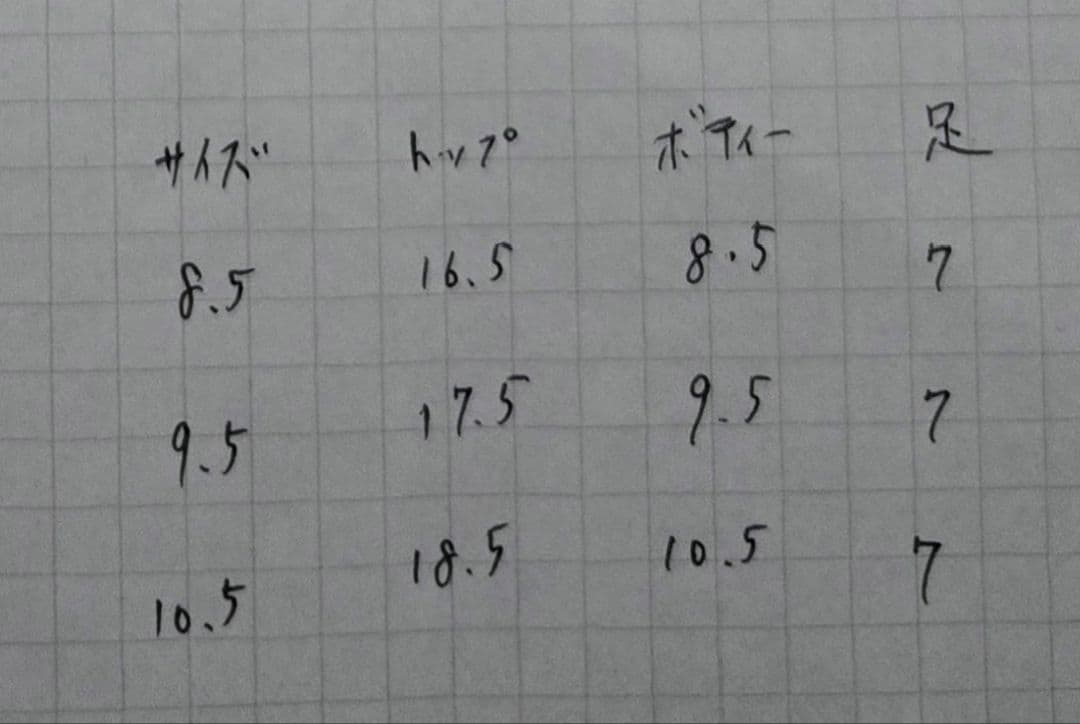 サイズ トップ ボディー 足
8.5 16.5 8.5 7
9.5 17.5 9.5 7
10.5 18.5 10.5 7